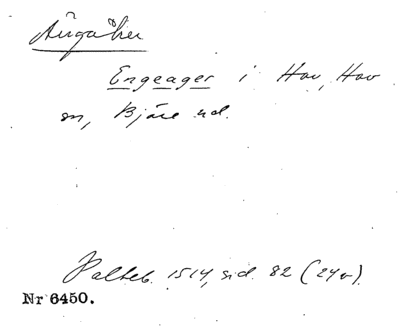 Ängaåker
Engeager i Hov, Hov
sn, Bjäre hd.
Palteb. 1514, sid. 82 (24v).
Nr 6450.